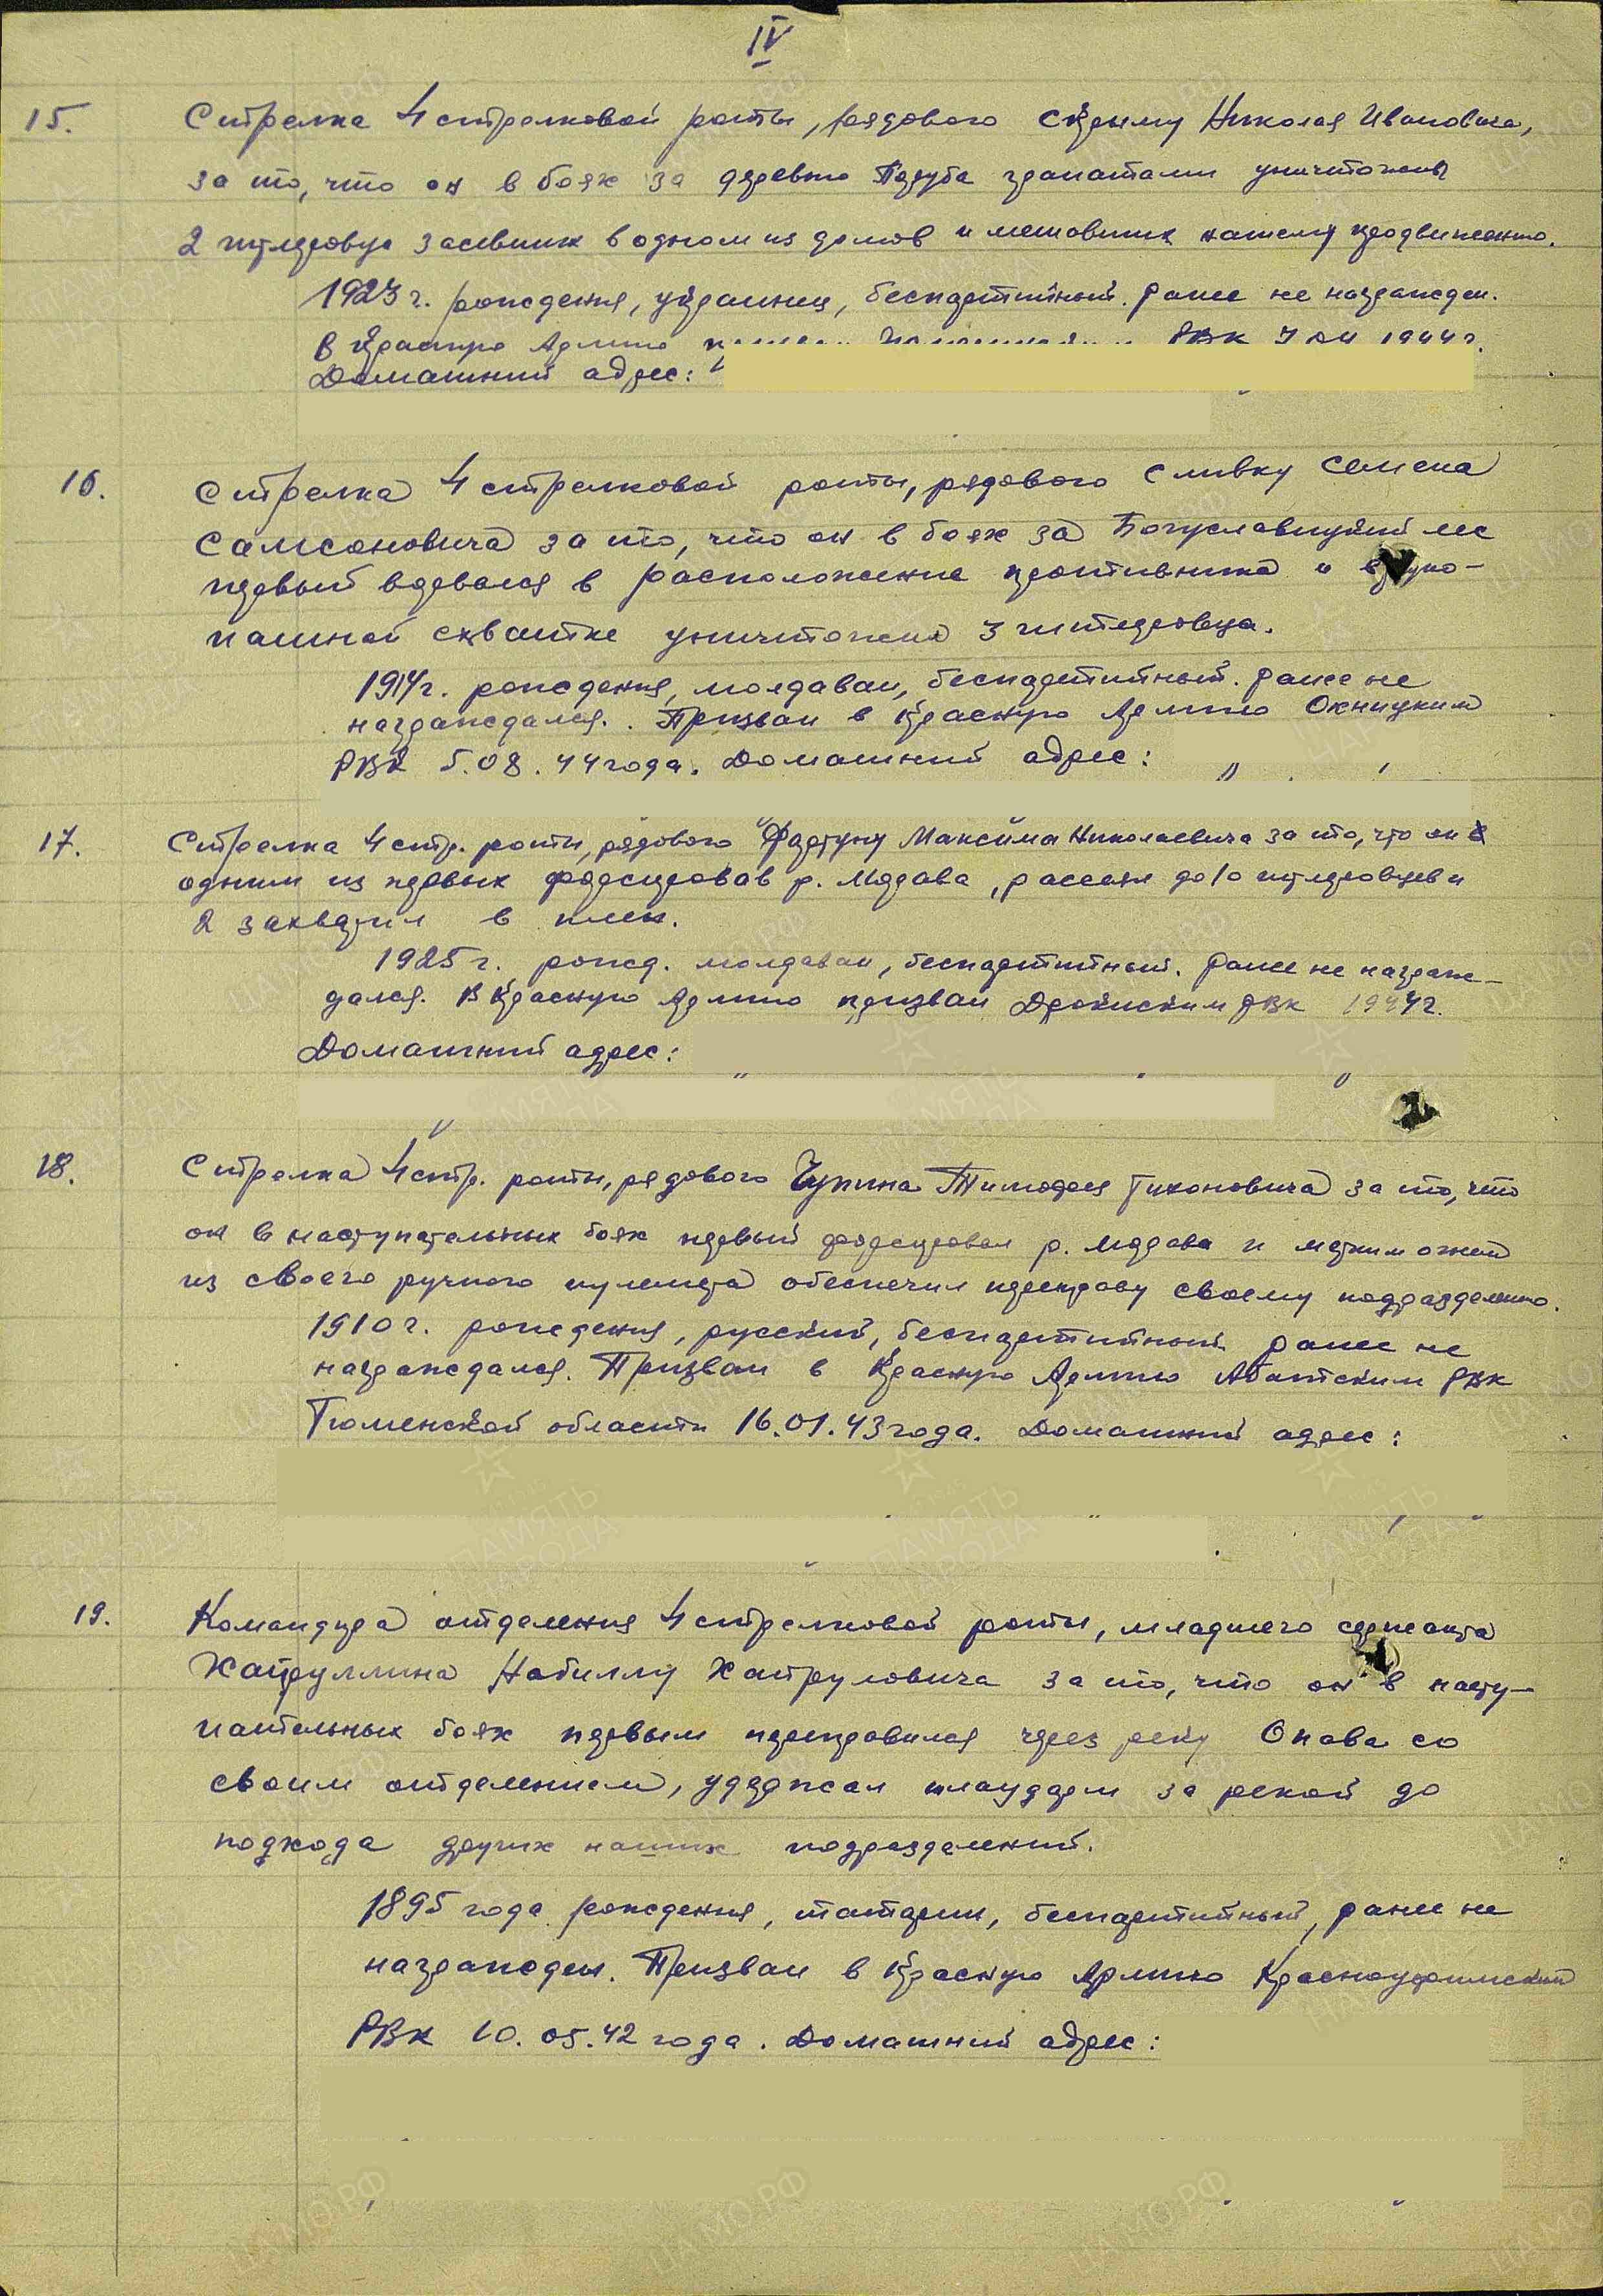 IV
15. Стрелка 4 стрелковой роты, рядового Скрыму Николая Ивановича,
за то, что он в боях за деревню гранатами уничтожил
2 гитлеровца засевших в одном из домов и мешавших нашему продвижению.
1923 г. рождения, украинец, беспартийный. Ранее не награжден.
В Красную Армию РВК 1944 г.
Домашний адрес:
16. Стрелка 4 стрелковой роты, рядового Сливку Семена
Самсоновича за то, что он в боях за Богуславицкий лес
первый ворвался в расположение противника и в руко-
пашной схватке уничтожил 3 гитлеровца.
1914 г. рождения, молдаван, беспартийный. Ранее не
награждался. Призван в Красную Армию Окницким
РВК 5.08.44 года. Домашний адрес:
17. Стрелка 4 стр. роты, рядового Фуртуну Максима Николаевича за то, что он
одним из первых форсировав р. Морава, рассеял до 10 гитлеровцев и
2 захватил в плен.
1925 г. рожд. молдаван, беспартийный. Ранее не награж-
дался. В Красную Армию призван РВК 1944 г.
Домашний адрес:
18. Стрелка 4 стр. роты, рядового Чупина Тимофея Тихоновича за то, что
он в наступательных боях первый форсировал р. Морава и метким огнем
из своего ручного пулемета обеспечил переправу своему подразделению.
1910 г. рождения, русский, беспартийный. Ранее не
награждался. Призван в Красную Армию Абатским РВК
Тюменской области 16.01.43 года. Домашний адрес:
19. Командира отделения 4 стрелковой роты, младшего сержанта
Хайруллина Набиллу Хайруловича за то, что он в насту-
пательных боях первым переправился через реку Опава со
своим отделением, удержал плацдарм за рекой до
подхода других наших подразделений.
1895 года рождения, татарин, беспартийный, ранее не
награжден. Призван в Красную Армию Красноуфимский
РВК 10.05.42 года. Домашний адрес: